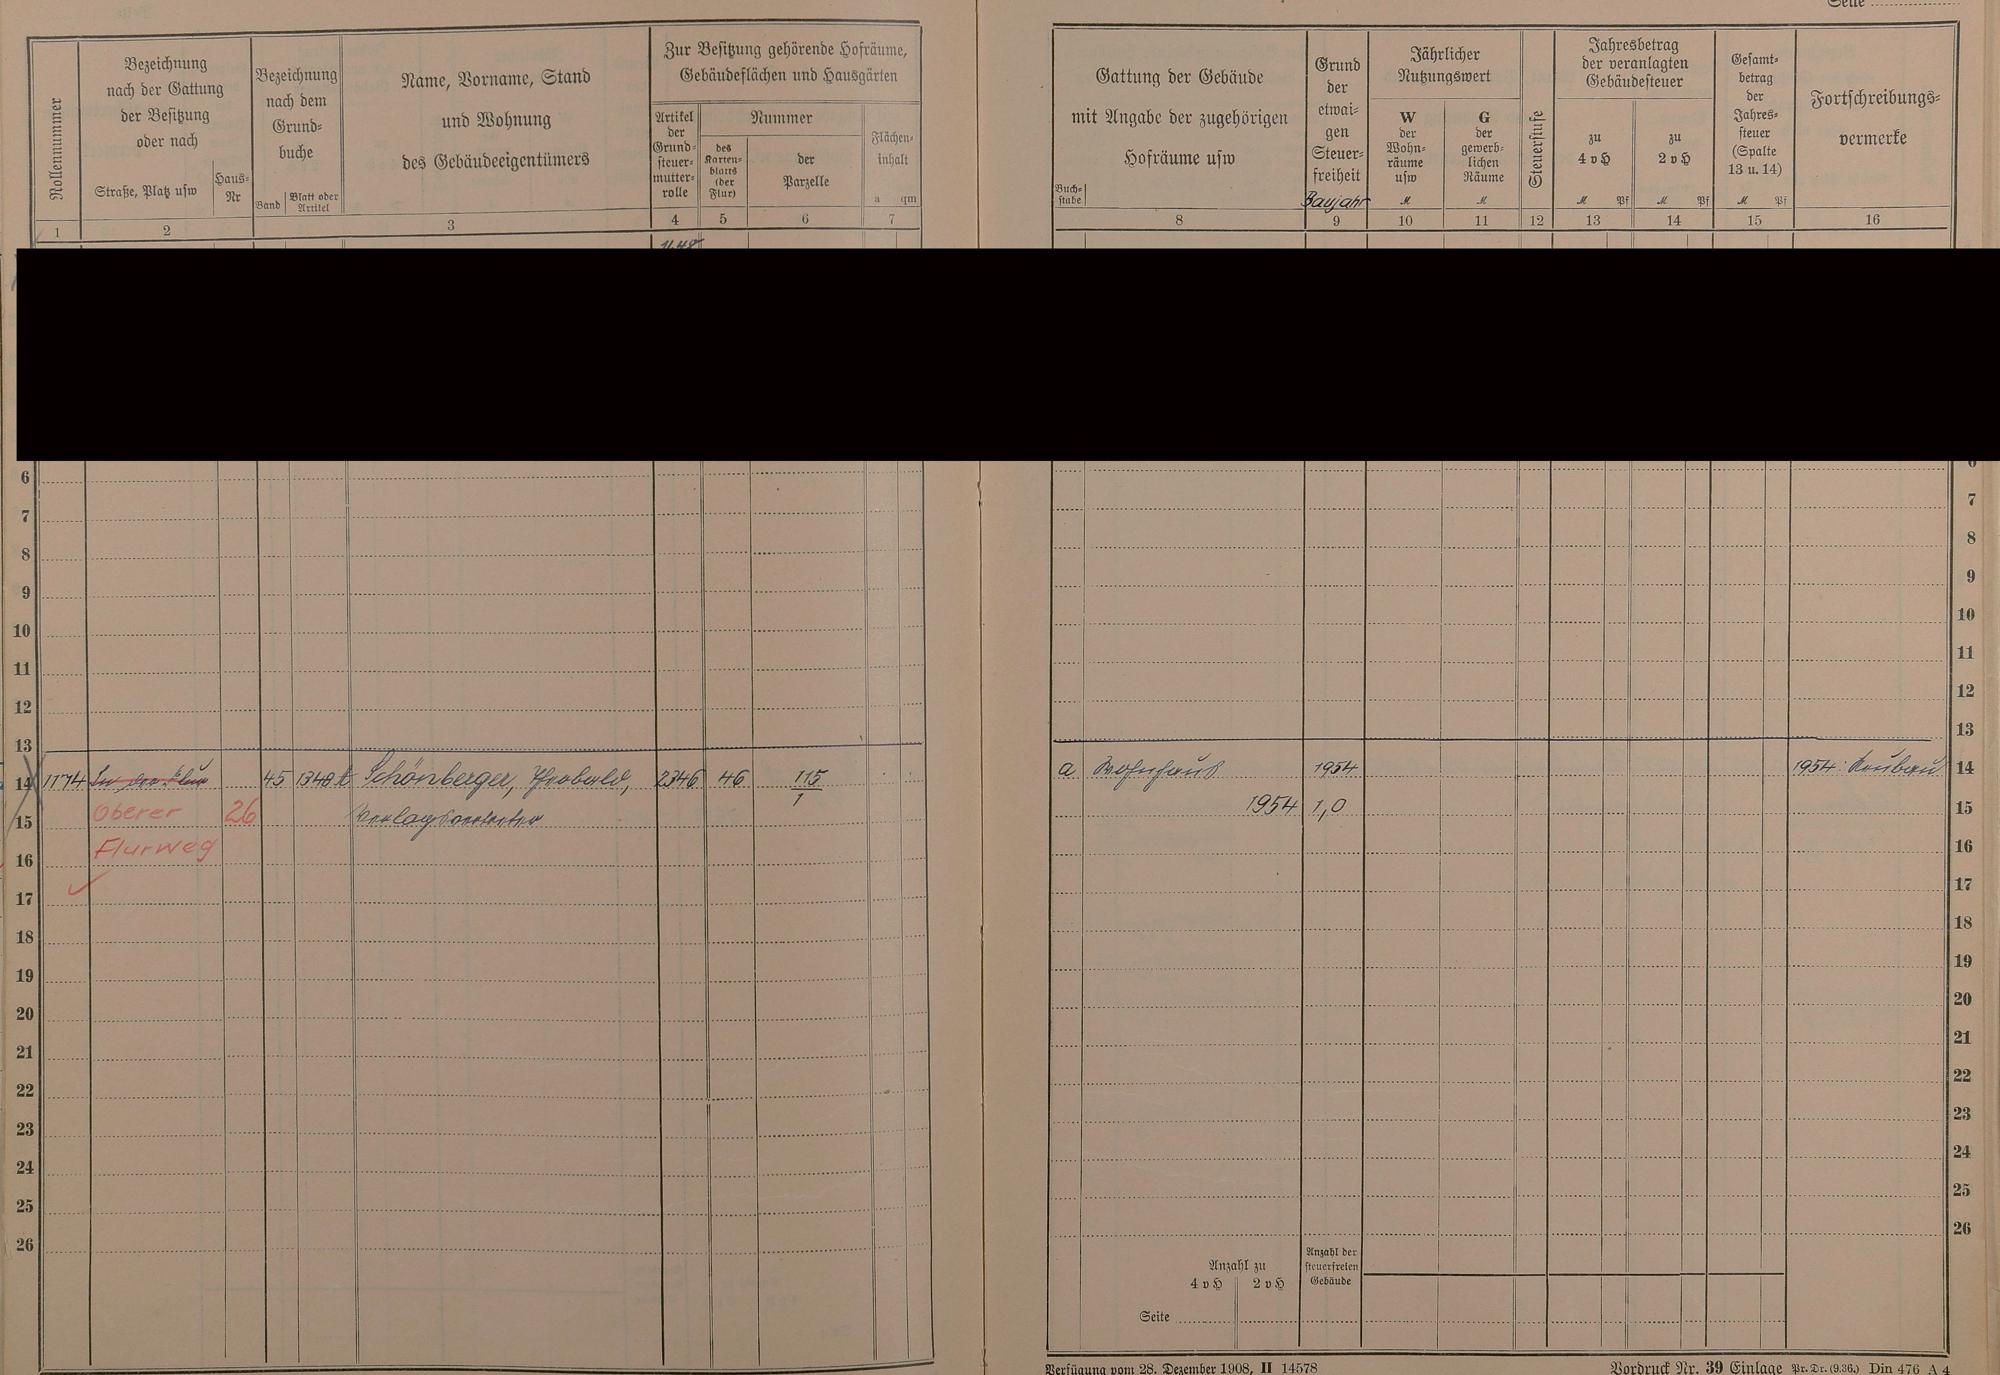 Seite
Rollennummer
Bezeichnung
nach der Gattung
der Besitzung
oder nach
Straße, Platz usw
Haus-
Nr
Bezeichnung
nach dem
Grund-
buche
Band
Blatt oder
Artikel
Name, Vorname, Stand
und Wohnung
des Gebäudeeigentümers
Zur Besitzung gehörende Hofräume,
Gebäudeflächen und Hausgärten
Artikel
der
Grund-
steuer-
mutter-
rolle
Nummer
des
Karten-
blatts
(der
Flur)
der
Parzelle
Flächen-
inhalt
a qm
1 2 3 4 5 6 7
Buch-
stabe
Gattung der Gebäude
mit Angabe der zugehörigen
Hofräume usw
Grund
der
etwai-
gen
Steuer-
freiheit
Baujahr
Jährlicher
Nutzungswert
W
der
Wohn-
räume
usw
M
G
der
gewerb-
lichen
Räume
M
Steuerstufe
Jahresbetrag
der veranlagten
Gebäudesteuer
zu
4 v H
M Pf
zu
2 v H
M Pf
Gesamt-
betrag
der
Jahres-
steuer
(Spalte
13 u. 14)
M Pf
Fortschreibungs-
vermerke
8 9 10 11 12 13 14 15 16
6
7
8
9
10
11
12
13
14 1174 In der Flur 45 1340 Schönberger, Theobald, 2346 46 115/1
15 Oberer 26 Verlagsvertreter
16 Flurweg
17
18
19
20
21
22
23
24
25
26
6
7
8
9
10
11
12
13
a Wohnhaus 1954 1954: Neubau 14
1954 1,0 15
16
17
18
19
20
21
22
23
24
25
26
Anzahl zu
4 v H 2 v H
Seite
Anzahl der
steuerfreien
Gebäude
Verfügung vom 28. Dezember 1908, II 14578
Vordruck Nr. 39 Einlage Pr. Dr. (9.36.) Din 476 A 4